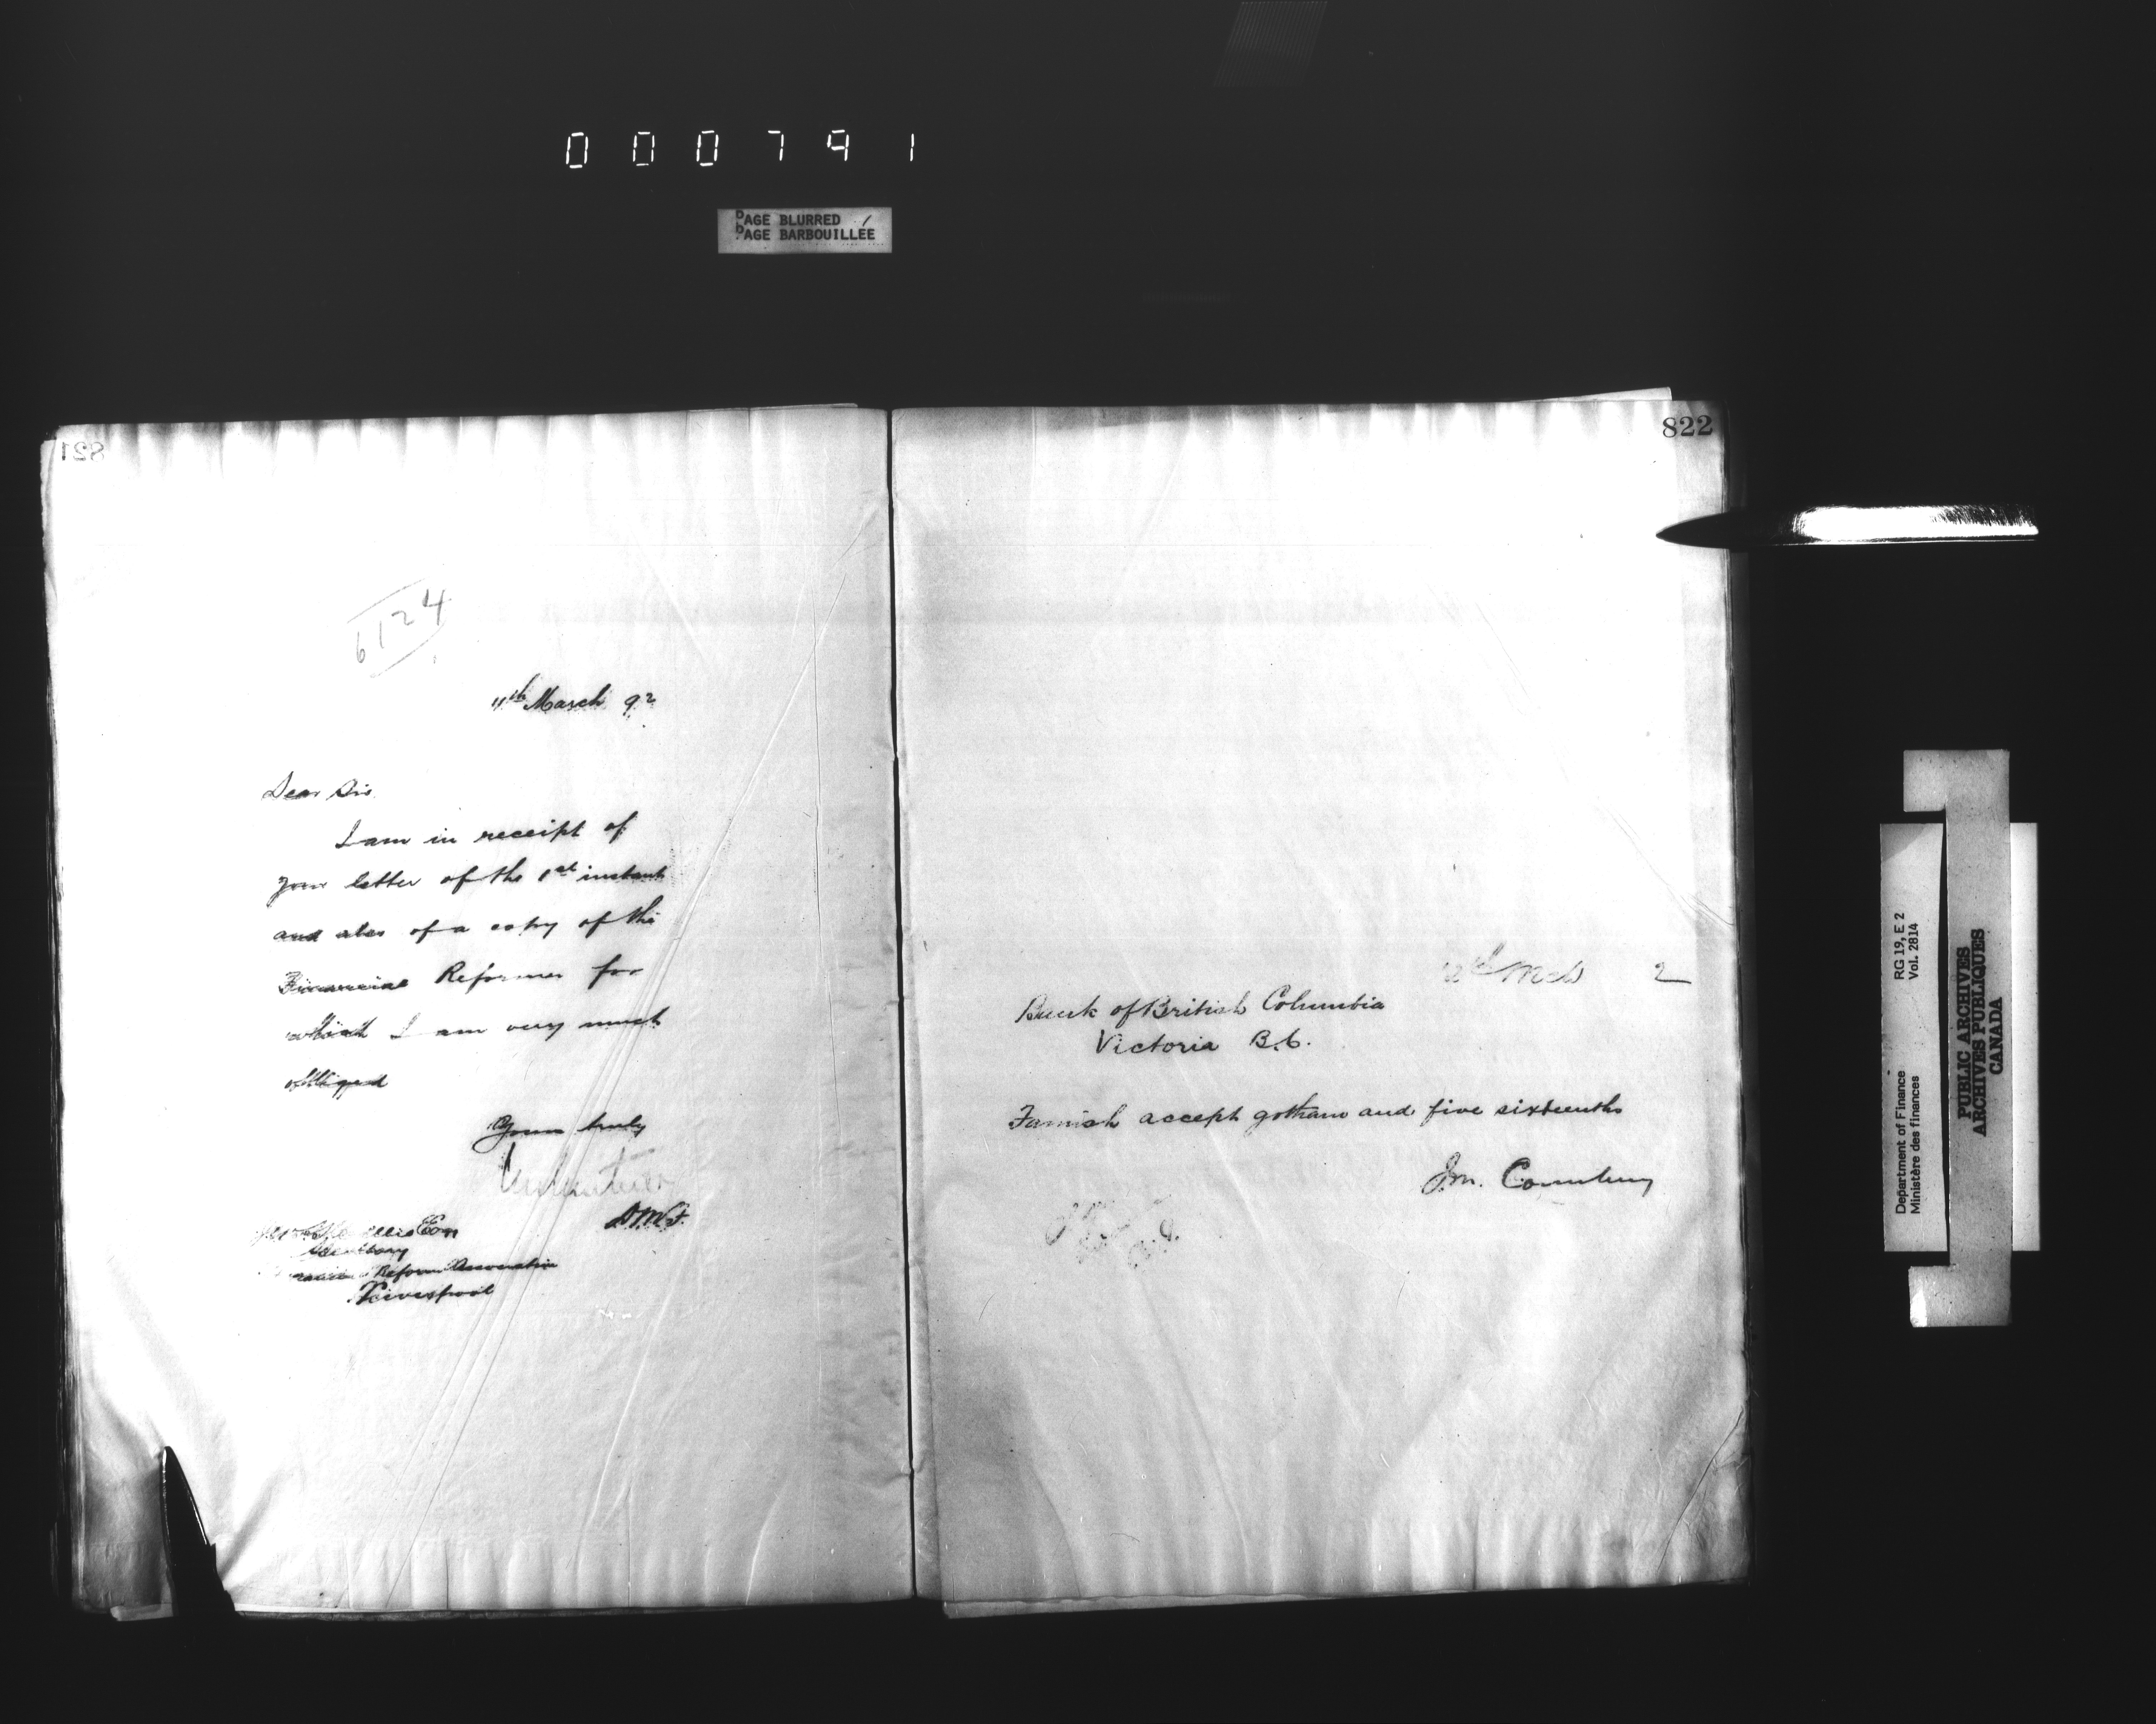 000791
PAGE BLURRED
PAGE BARBOUILLÉE
821
6124
11th March 92
Dear Sir
I am in receipt of
your letter of the 1st instant
and also of a copy of the
Financial Reformer for
which I am very much
obliged
Yours truly
DMF
Esq
Secretary
Reform Association
Liverpool
822
12th Mch 2
Bank of British Columbia
Victoria B.C.
Furnish accept gotham and five sixteenths
J.M. Courtney
RG 19, E 2
Vol. 2814
Department of Finance
Ministère des finances
PUBLIC ARCHIVES
ARCHIVES PUBLIQUES
CANADA